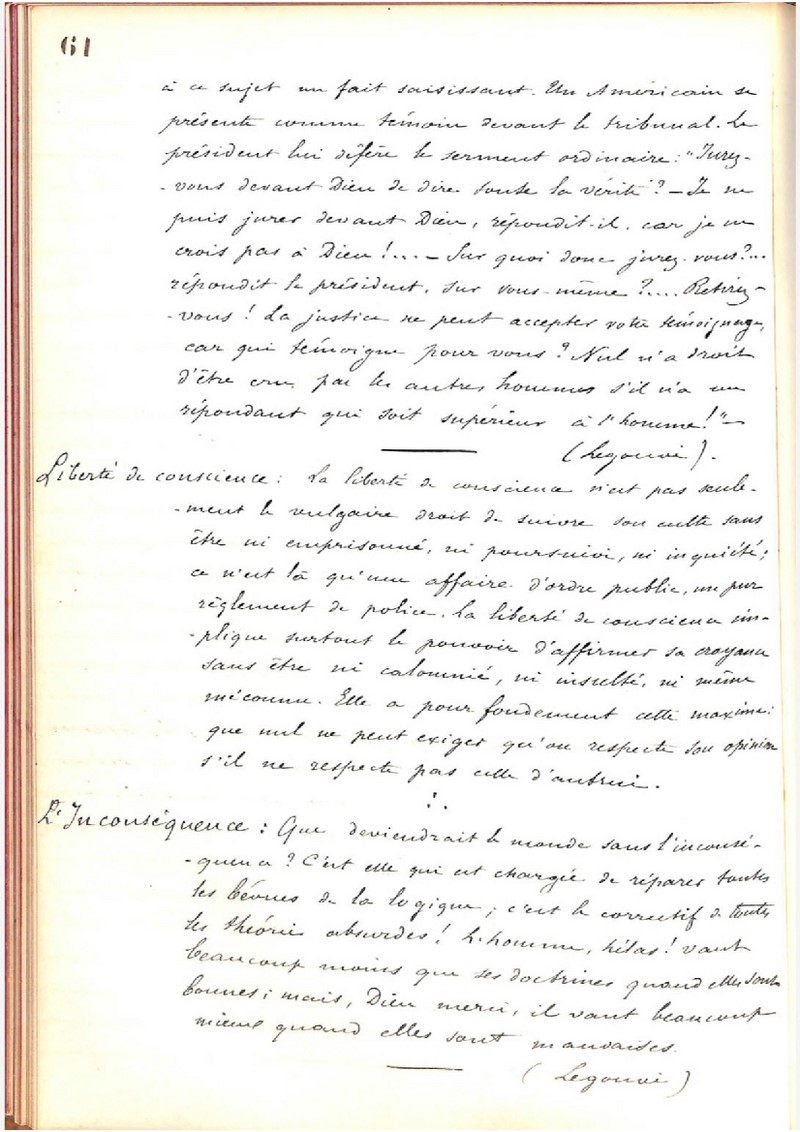 61
à ce sujet un fait saisissant. Un Américain se
présente comme témoin devant le tribunal. Le
président lui défère le serment ordinaire: "Jurez-
-vous devant Dieu de dire toute la vérité? — Je ne
puis jurer devant Dieu, répondit-il, car je ne
crois pas à Dieu!... — Sur quoi donc jurez-vous?...
répondit le président, sur vous-même?.... Retirez-
-vous! La justice ne peut accepter votre témoignage,
car qui témoigne pour vous? Nul n'a droit
d'être cru par les autres hommes s'il n'a un
répondant qui soit supérieur à l'homme!" —
(Legouvé).
Liberté de conscience: La liberté de conscience n'est pas seule-
-ment le vulgaire droit de suivre son culte sans
être ni emprisonné, ni poursuivi, ni inquiété;
ce n'est là qu'une affaire d'ordre public, un pur
règlement de police. La liberté de conscience im-
-plique surtout le pouvoir d'affirmer sa croyance
sans être ni calomnié, ni insulté, ni même
méconnu. Elle a pour fondement cette maxime:
que nul ne peut exiger qu'on respecte son opinion
s'il ne respecte pas celle d'autrui.
L'Inconséquence: Que deviendrait le monde sans l'inconsé-
-quence? C'est elle qui est chargée de réparer toutes
les bévues de la logique; c'est le correctif de toutes
les théories absurdes! L'homme, hélas! vaut
beaucoup moins que ses doctrines quand elles sont
bonnes; mais, Dieu merci, il vaut beaucoup
mieux quand elles sont mauvaises.
(Legouvé)